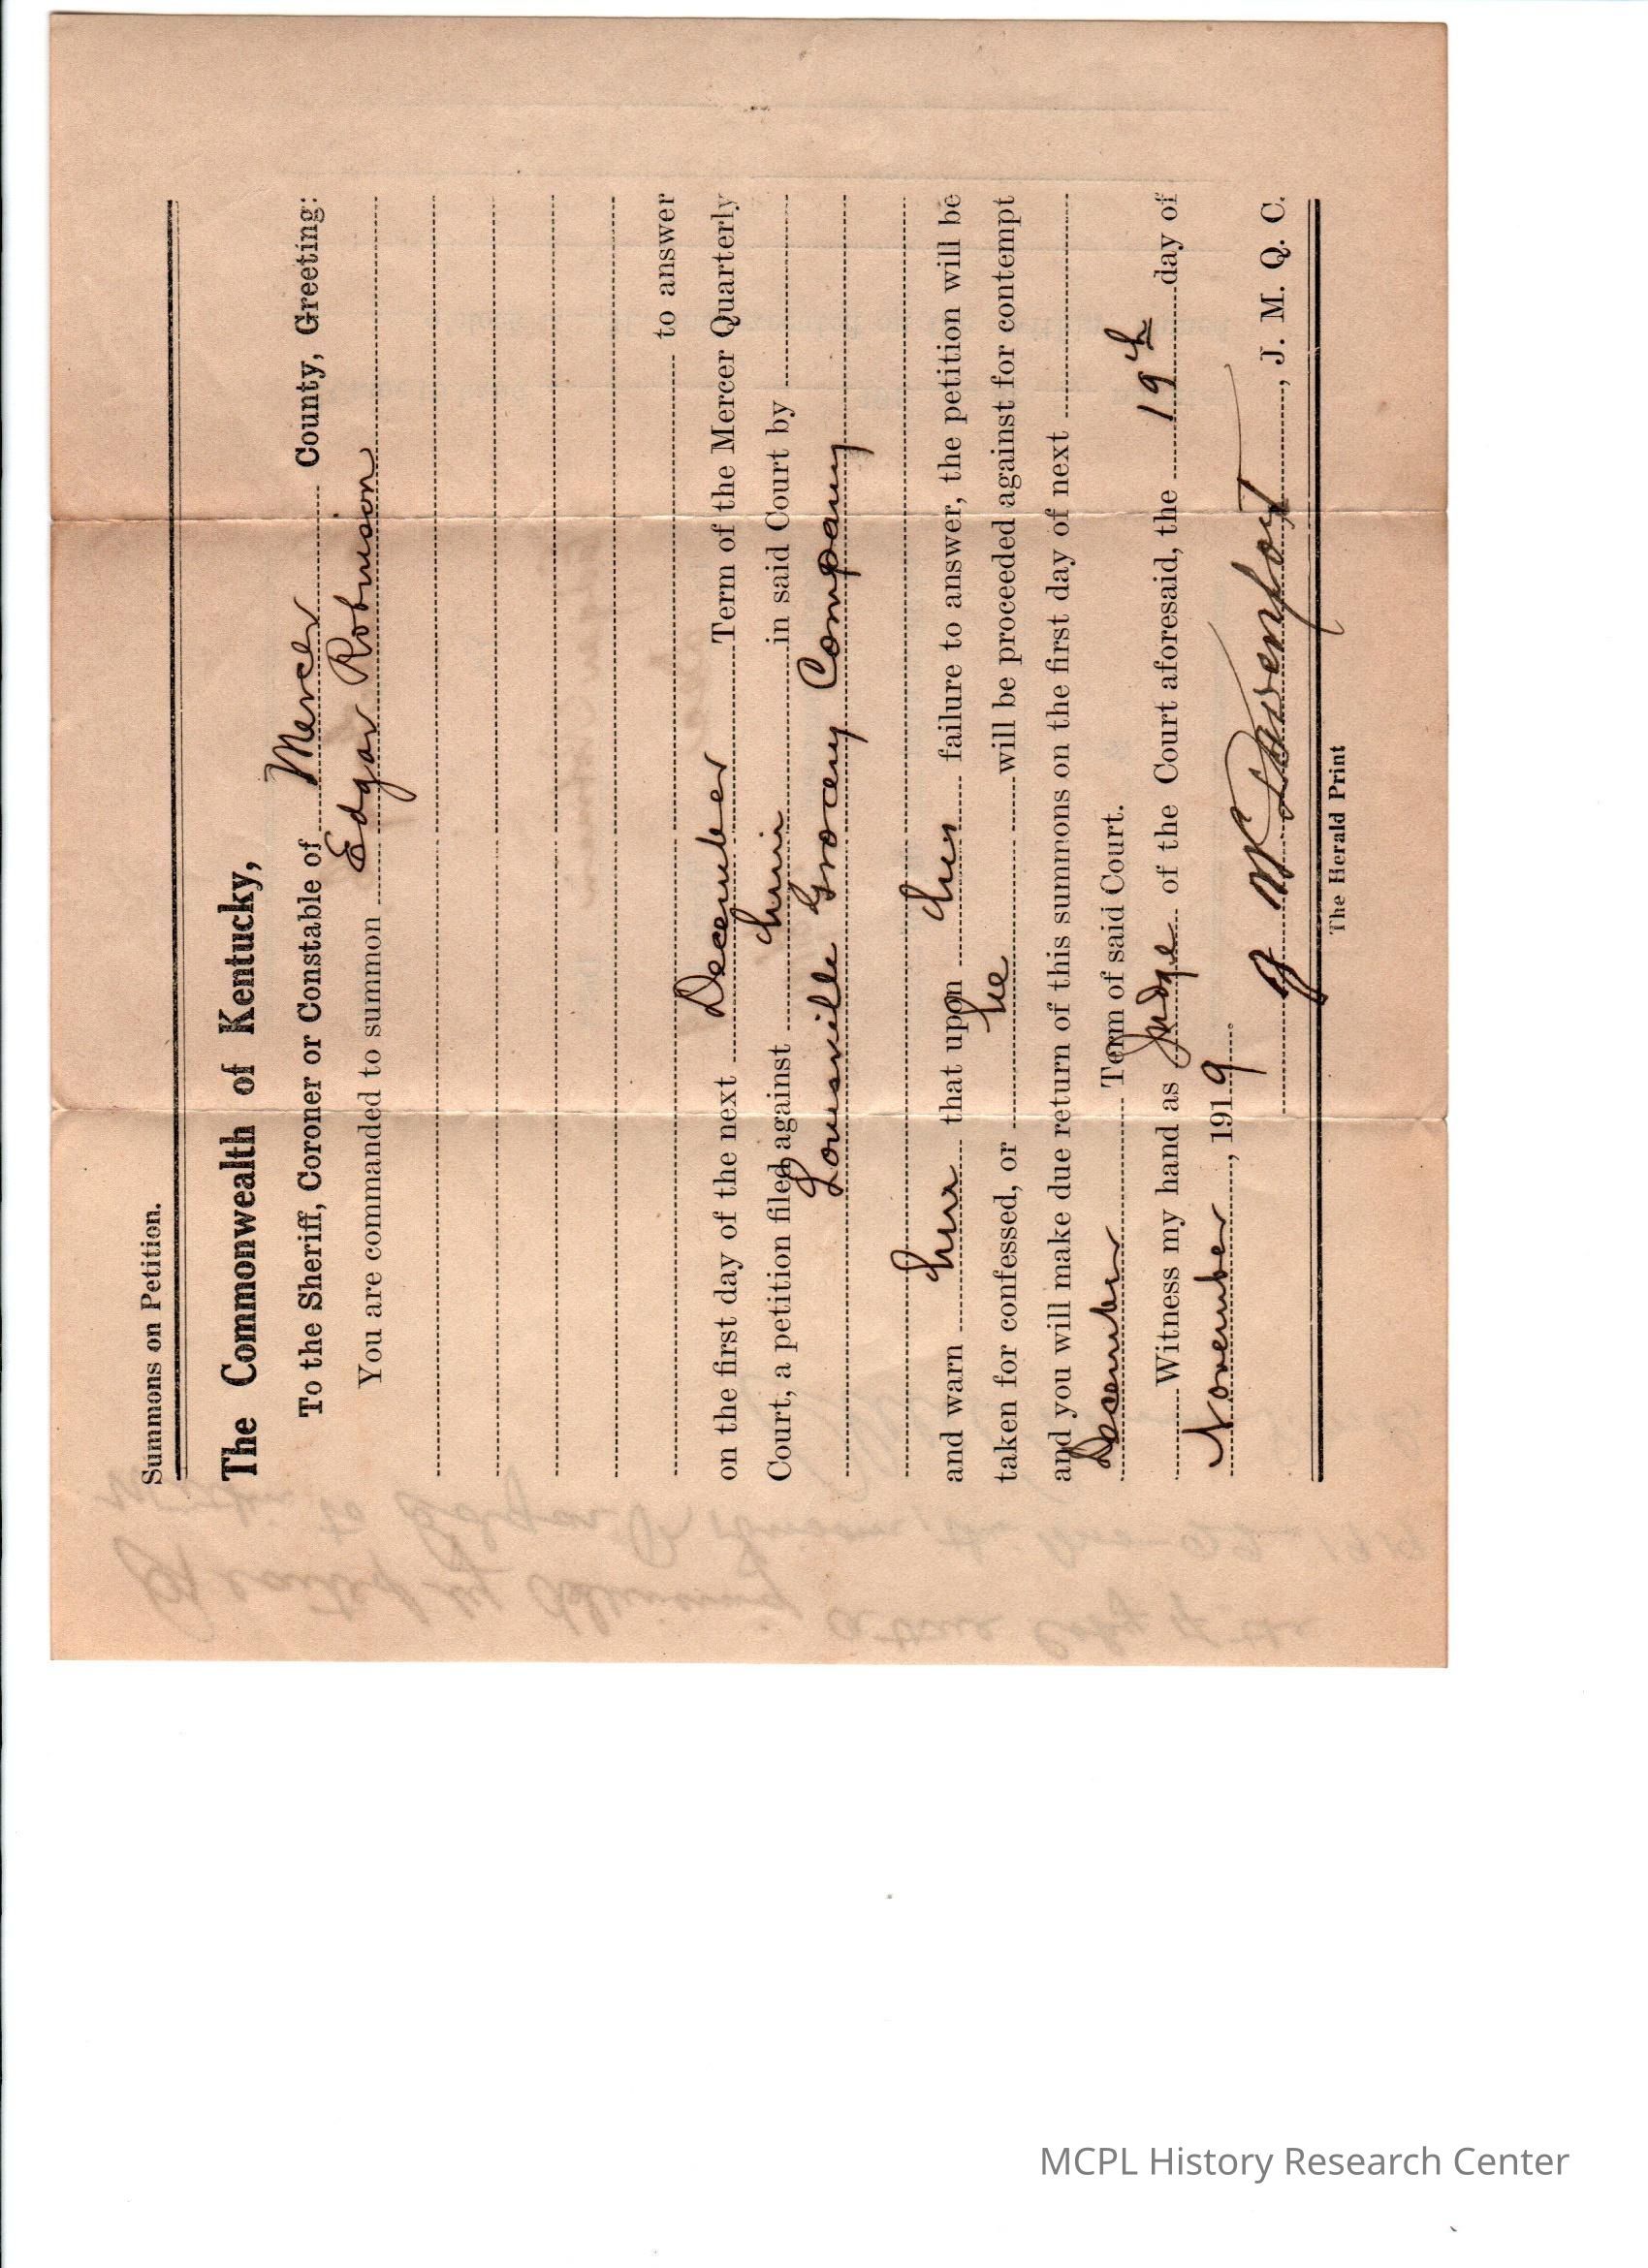 Summons on Petition.
The Commonwealth of Kentucky,
To the Sheriff, Coroner or Constable of Mercer County, Greeting:
You are commanded to summon Edgar Robinson
to answer
on the first day of the next December Term of the Mercer Quarterly
Court, a petition filed against him in said Court by
Louisville Grocery Company
and warn him that upon his failure to answer, the petition will be
taken for confessed, or he will be proceeded against for contempt
and you will make due return of this summons on the first day of next
December Term of said Court.
Witness my hand as Judge of the Court aforesaid, the 19th day of
November, 1919
Davenport, J. M. Q. C.
The Herald Print
MCPL History Research Center